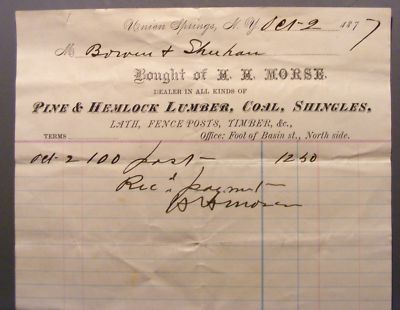 Union Springs, N. Y. Oct 2 1877
M Bowen & Sheehan
Bought of H. H. MORSE.
DEALER IN ALL KINDS OF
PINE & HEMLOCK LUMBER, COAL, SHINGLES,
LATH, FENCE POSTS, TIMBER, &c.,
TERMS Office: Foot of Basin st., North side.
Oct 2 100 post 12 50
Rec'd payment
H H Morse